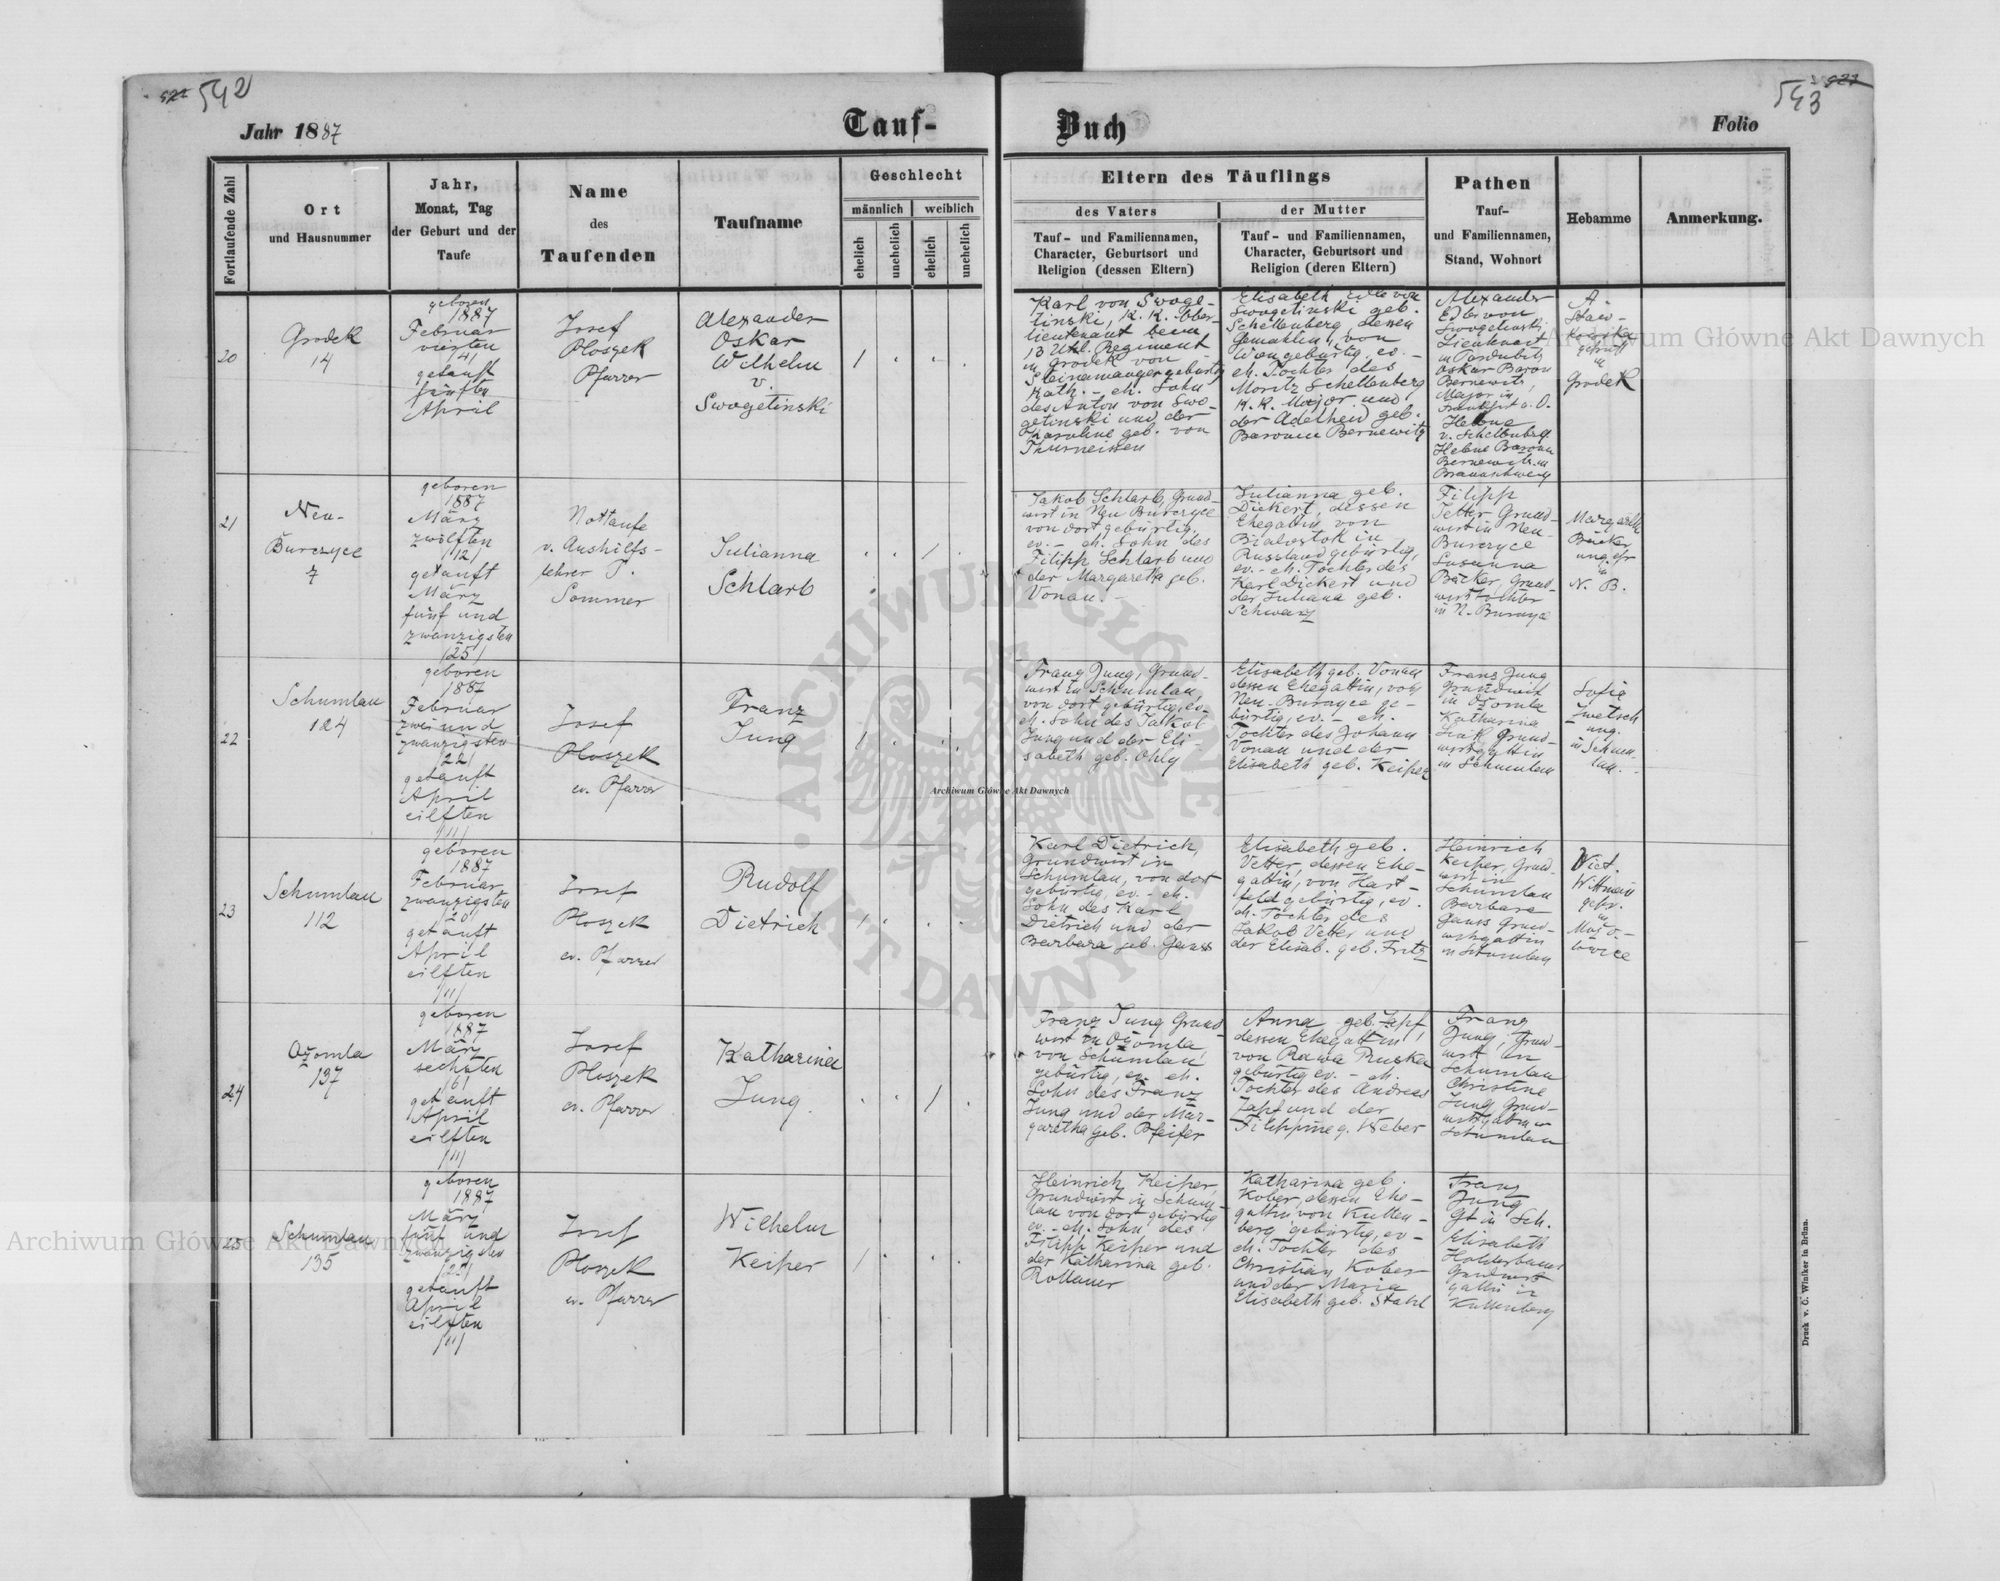 542
543
Jahr 1887
Tauf-
Buch
Folio
Fortlaufende Zahl
Ort
und Hausnummer
Jahr,
Monat, Tag
der Geburt und der
Taufe
Name
des
Taufenden
Taufname
Geschlecht
männlich
weiblich
ehelich
unehelich
ehelich
unehelich
Eltern des Täuflings
des Vaters
der Mutter
Tauf- und Familiennamen,
Character, Geburtsort und
Religion (dessen Eltern)
Tauf- und Familiennamen,
Character, Geburtsort und
Religion (deren Eltern)
Pathen
Tauf-
und Familiennamen,
Stand, Wohnort
Hebamme
Anmerkung.
20
Grodek
14
geboren
1887
Februar
vierten
/4/
getauft
fünften
April
Josef
Ploszek
Pfarrer
Alexander
Oskar
Wilhelm
v.
Swogetinski
1
Karl von Swoge-
tinski, K. K. Ober-
lieutenant beim
13 Uhl. Regiment
in Grodek von
Steinamanger gebürtig
Kath. - eh. Sohn
des Anton von Swo-
getinski und der
Karoline geb. von
Thurneissen
Elisabeth Edle von
Swogetinski geb.
Schellenberg, dessen
Gemahlin, von
Wien gebürtig, ev. -
eh. Tochter des
Moritz Schellenberg
K. K. Major und
der Adelheid geb.
Baronin Bernewitz
Alexander
Edler von
Swogetinski
in Pardubitz
Oskar Baron
Bernewitz,
Major in
Frankfurt a. O.
Helene
v. Schellenberg
Helene Baronin
Bernewitz in
Braunschweig
A.
geprüft
in
Grodek
21
Neu-
Burczyce
7
geboren
1887
März
zwölften
/12/
getauft
März
fünf und
zwanzigsten
/25/
Nottaufe
v. Aushilfs-
lehrer P.
Sommer
Julianna
Schlarb
1
Jakob Schlarb, Grund-
wirt in Neu Burczyce
von dort gebürtig,
ev. - eh. Sohn des
Filipp Schlarb und
der Margaretha geb.
Vonau. -
Julianna geb.
Dickert, dessen
Ehegattin von
Bialostok in
Russland gebürtig,
ev. - eh. Tochter des
Karl Dickert und
der Juliana geb.
Schwarz
Filipp
Tetter Grund-
wirt in Neu-
Burczyce
Susanna
Bäcker, Grund-
wirtstochter
in N. Burczyce
Margareth
Bäcker
ungepr
in
N. B.
22
Schumlau
124
geboren
1887
Februar
zwei und
zwanzigsten
/22/
getauft
April
eilften
/11/
Josef
Ploszek
ev. Pfarrer
Franz
Jung
1
Franz Jung, Grund-
wirt in Schumlau,
von dort gebürtig, ev.
eh. Sohn des Jakob
Jung und der Eli-
sabeth geb. Ohly
Elisabeth geb. Vonau
dessen Ehegattin, von
Neu-Burczyce ge-
bürtig, ev. - eh.
Tochter des Johann
Vonau und der
Elisabeth geb. Keiper
Franz Jung
Grundwirt
in Ożomla
Katharina
Grund-
wirtsgattin
in Schumlau
Sofie
Zwetsch
ung.
in Schum-
lau. -
23
Schumlau
112
geboren
1887
Februar
zwanzigsten
/20/
getauft
April
eilften
/11/
Josef
Ploszek
ev. Pfarrer
Rudolf
Dietrich
1
Karl Dietrich,
Grundwirt in
Schumlau, von dort
gebürtig, ev. - eh.
Sohn des Karl
Dietrich und der
Barbara geb. Gauss
Elisabeth geb.
Vetter, dessen Ehe-
gattin, von Hart-
feld gebürtig, ev.
eh. Tochter des
Jakob Vetter und
der Elisab. geb. Fritz
Heinrich
Keiper, Grund-
wirt in
Schumlau
Barbara
Gauss Grund-
wirtsgattin
in Schumlau
Vict.
Wittmann
gepr.
in
24
Ożomla
137
geboren
1887
März
sechsten
/6/
getauft
April
eilften
/11/
Josef
Ploszek
ev. Pfarrer
Katharina
Jung
1
Franz Jung Grund-
wirt in Ożomla
von Schumlau
gebürtig, ev. eh.
Sohn des Franz
Jung und der Mar-
garetha geb. Pfeifer
Anna geb. Zapf
dessen Ehegattin
von Rawa Ruska
gebürtig ev. - eh.
Tochter des Andreas
Zapf und der
Filippine g. Weber
Franz
Jung, Grund-
wirt in
Schumlau
Christine
Jung Grund-
wirtsgattin in
Schumlau
25
Schumlau
135
geboren
1887
März
fünf und
zwanzigsten
/25/
getauft
April
eilften
/11/
Josef
Ploszek
ev. Pfarrer
Wilhelm
Keiper
1
Heinrich Keiper,
Grundwirt in Schum-
lau von dort gebürtig
ev. - eh. Sohn des
Filipp Keiper und
der Katharina geb.
Rollauer
Katharina geb.
Kober, dessen Ehe-
gattin von Kutten-
berg gebürtig, ev -
eh. Tochter des
Christian Kober
und der Maria
Elisabeth geb. Stahl
Franz
Jung
Gt in Sch.
Elisabeth
Grundwirts
gattin in
Kuttenberg
Druck v. C. Winiker in Brünn.
Archiwum Główne Akt Dawnych
Archiwum Główne Akt Dawnych
Archiwum Główne Akt Dawnych
ARCHIWUM GŁÓWNE AKT DAWNYCH